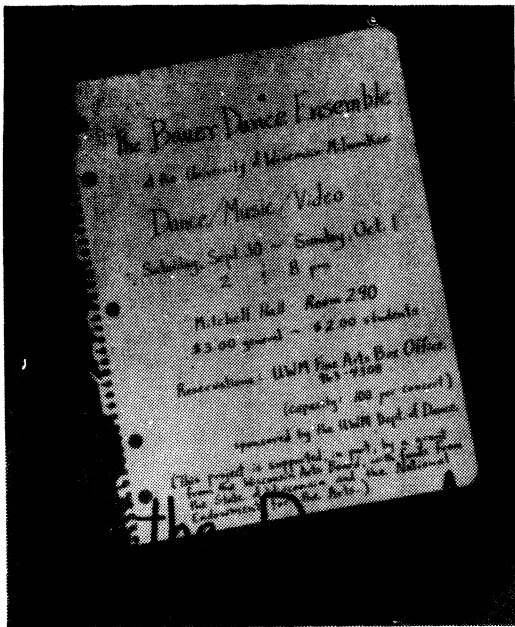 The Bauer Dance Ensemble
at the University of Wisconsin Milwaukee
Dance/Music/Video
Saturday, Sept. 30 ~ Sunday, Oct. 1
2 & 8 pm
Mitchell Hall Room 290
$3.00 general ~ $2.00 students
Reservations: UWM Fine Arts Box Office
963-4308
(capacity: 100 per concert)
sponsored by the UWM Dept of Dance.
(This project is supported in part, by a grant
from the Wisconsin Arts Board, with funds from
the State of Wisconsin and the National
Endowment for the Arts.)
the D